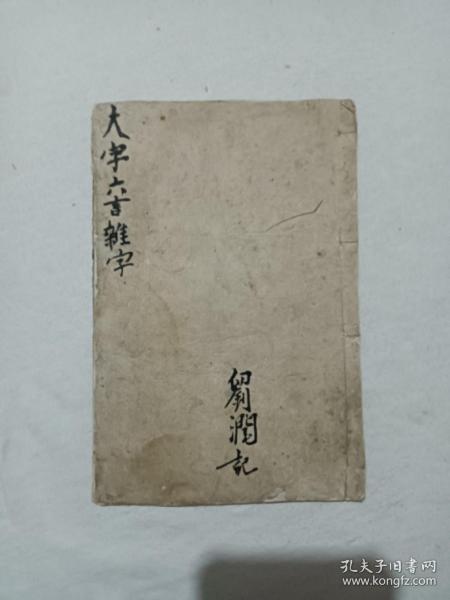 大字六言雜字
潤記
孔夫子旧书网
www.kongfz.com